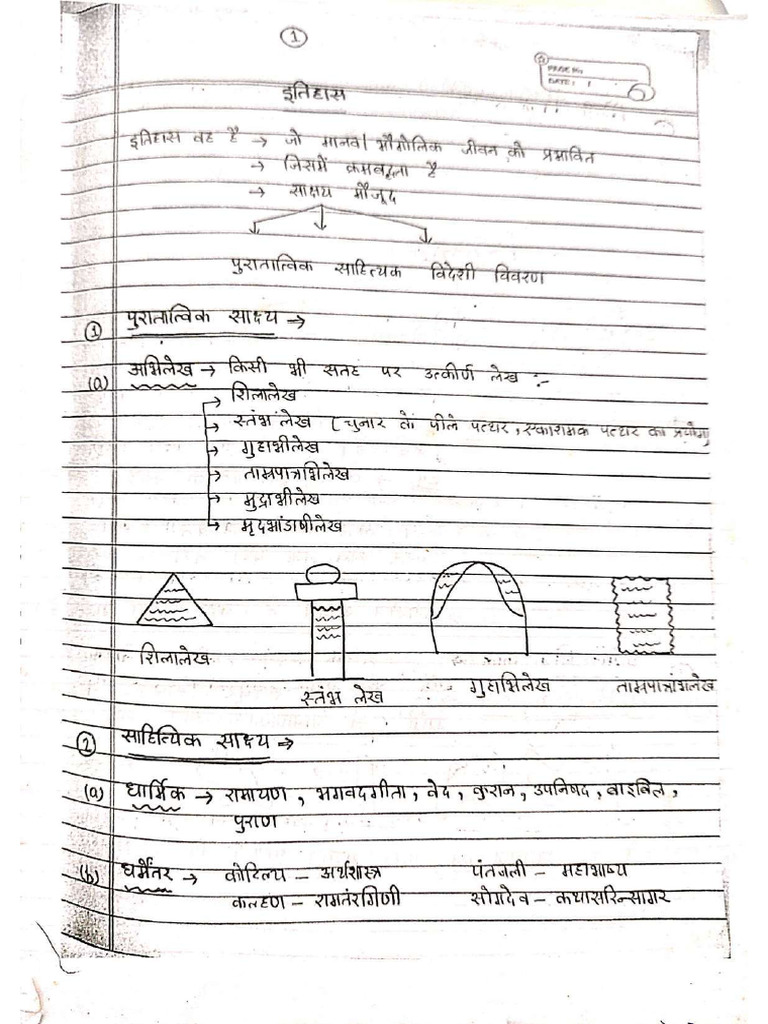 1
PAGE No.
DATE:
इतिहास
इतिहास वह है → जो मानव/भौगोलिक जीवन को प्रभावित
→ जिसमें क्रमबद्धता है
→ साक्षय मौजूद
पुरातात्विक साहित्यक विदेशी विवरण
① पुरातात्विक साक्ष्य →
(a) अभिलेख → किसी भी सतह पर उत्कीर्ण लेख :-
→ शिलालेख
→ स्तंभ लेख (चुनार के पीले पत्थर, एकाश्मक पत्थर का प्रयोग)
→ गुहाभीलेख
→ ताम्रपात्राभिलेख
→ मुद्राभीलेख
→ मृदभांडाभीलेख
शिलालेख स्तंभ लेख गुहाभिलेख ताम्रपात्राभिलेख
② साहित्यिक साक्ष्य →
(a) धार्मिक → रामायण, भगवदगीता, वेद, कुरान, उपनिषद, बाइबिल,
पुराण
(b) धर्मेतर → कोटिल्य – अर्थशास्त्र पंतजली – महाभाष्य
कलहण – राजतंरगिणी सोमदेव – कथासरित्सागर